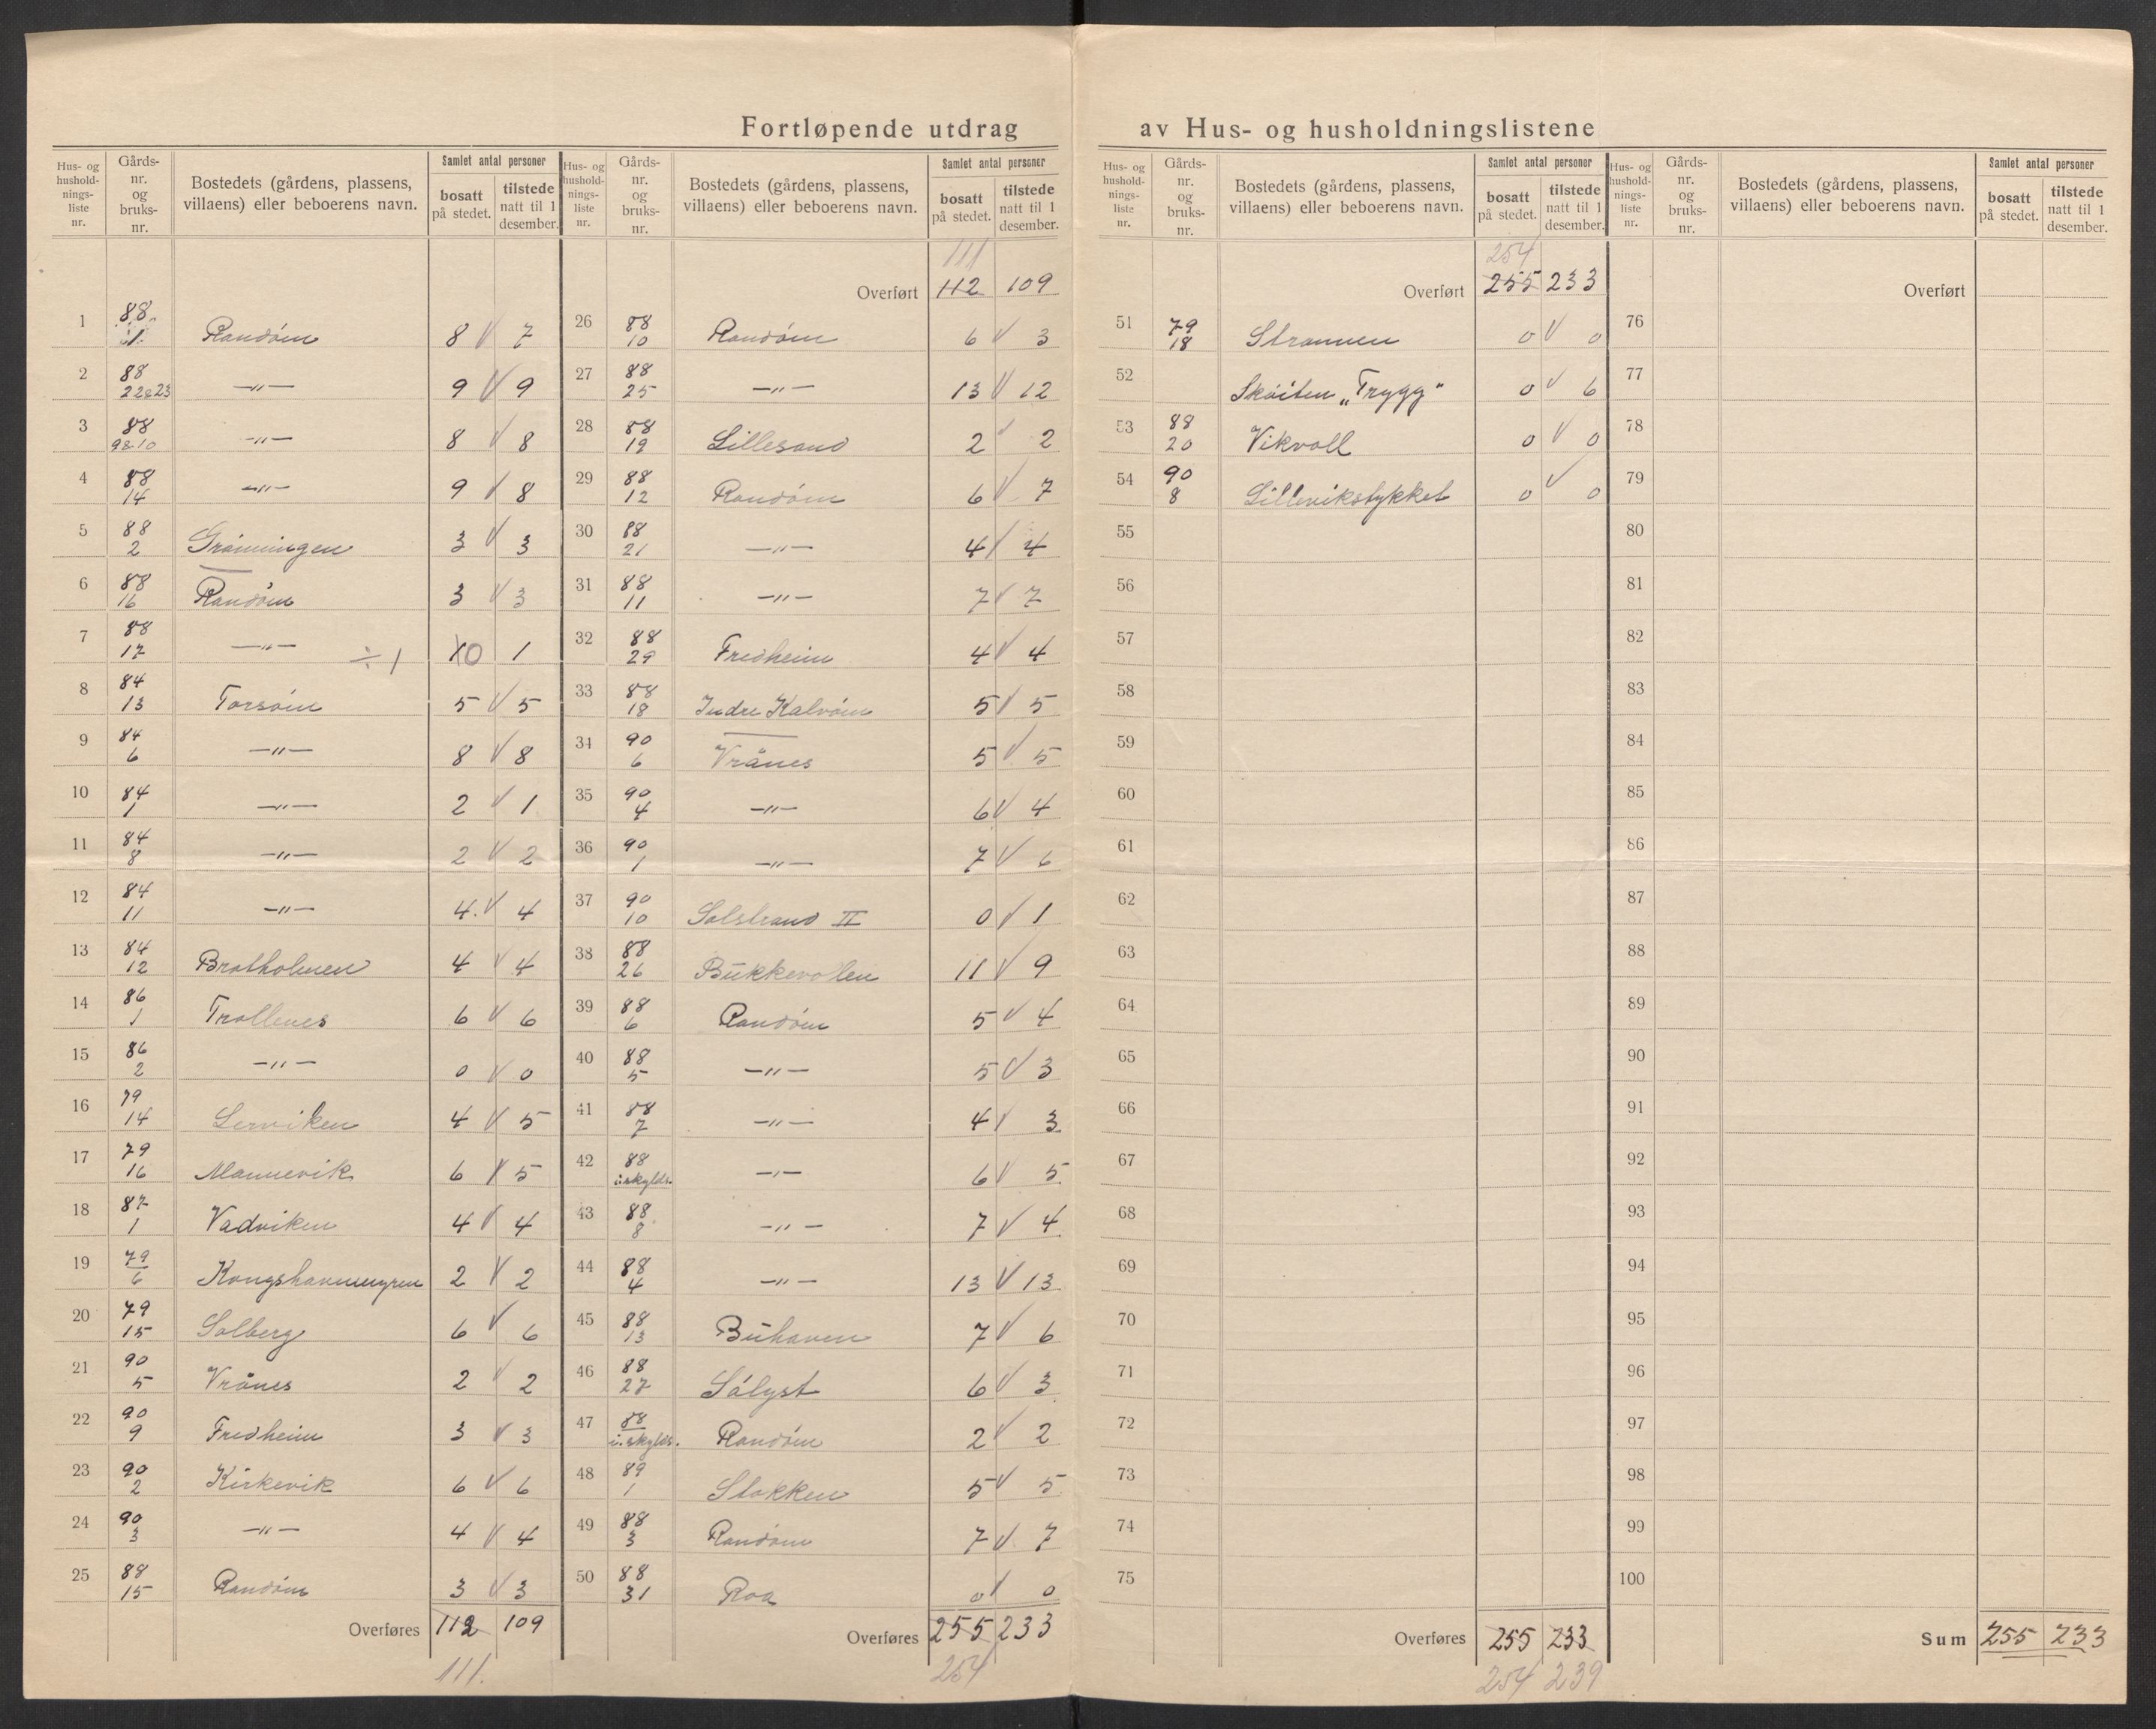 Fortløpende utdrag av Hus- og husholdningslistene
Hus- og husholdnings-liste nr. | Gårds-nr. og bruks-nr. | Bostedets (gårdens, plassens, villaens) eller beboerens navn. | Samlet antal personer | bosatt på stedet. | tilstede natt til 1 desember.
1 88 1 Randöin 8 7
2 88 22&23 —„— 9 9
3 88 9&10 —„— 8 8
4 88 14 —„— 9 8
5 88 2 Gröinningen 3 3
6 88 16 Randöin 3 3
7 88 17 —„— ÷1 1 0 1
8 84 13 Torsöin 5 5
9 84 6 —„— 8 8
10 84 1 —„— 2 1
11 84 8 —„— 2 2
12 84 11 —„— 4 4
13 84 12 Bratholmen 4 4
14 86 1 Trollenes 6 6
15 86 2 —„— 0 0
16 79 14 Lerviken 4 5
17 79 16 Mannevik 6 5
18 87 1 Vadviken 4 4
19 79 6 2 2
20 79 15 Solberg 6 6
21 90 5 Vrånes 2 2
22 90 9 Fredheim 3 3
23 90 2 Kirkevik 6 6
24 90 3 —„— 4 4
25 88 15 Randöin 3 3
Overføres 112 109
111.
Hus- og husholdnings-liste nr. | Gårds-nr. og bruks-nr. | Bostedets (gårdens, plassens, villaens) eller beboerens navn. | Samlet antal personer | bosatt på stedet. | tilstede natt til 1 desember.
111
Overført 112 109
26 88 10 Randöin 6 3
27 88 25 —„— 13 12
28 88 19 Lillesand 2 2
29 88 12 Randöin 6 7
30 88 21 —„— 4 4
31 88 11 —„— 7 7
32 88 29 Fredheim 4 4
33 88 18 Indre Kalvöin 5 5
34 90 6 Vrånes 5 5
35 90 4 —„— 6 4
36 90 1 —„— 7 6
37 90 10 Solstrand II 0 1
38 88 26 Bukkevolen 11 9
39 88 6 Randöin 5 4
40 88 5 —„— 5 3
41 88 7 —„— 4 3
42 88 i:skylds. —„— 6 5
43 88 8 —„— 7 4
44 88 4 —„— 13 13
45 88 13 Buhaven 7 6
46 88 27 Sólyst 6 3
47 88 i:skylds. Randöin 2 2
48 89 1 Stokken 5 5
49 88 3 Randöin 7 7
50 88 31 Roa 0 0
Overføres 255 233
254
Hus- og husholdnings-liste nr. | Gårds-nr. og bruks-nr. | Bostedets (gårdens, plassens, villaens) eller beboerens navn. | Samlet antal personer | bosatt på stedet. | tilstede natt til 1 desember.
254
Overført 255 233
51 79 18 Strannen 0 0
52 Sköiten „Trygg" 0 6
53 88 20 Vikvoll 0 0
54 90 8 Lillevikstykket 0 0
55
56
57
58
59
60
61
62
63
64
65
66
67
68
69
70
71
72
73
74
75
Overføres 255 233
254 239
Hus- og husholdnings-liste nr. | Gårds-nr. og bruks-nr. | Bostedets (gårdens, plassens, villaens) eller beboerens navn. | Samlet antal personer | bosatt på stedet. | tilstede natt til 1 desember.
Overført
76
77
78
79
80
81
82
83
84
85
86
87
88
89
90
91
92
93
94
95
96
97
98
99
100
Sum 255 233